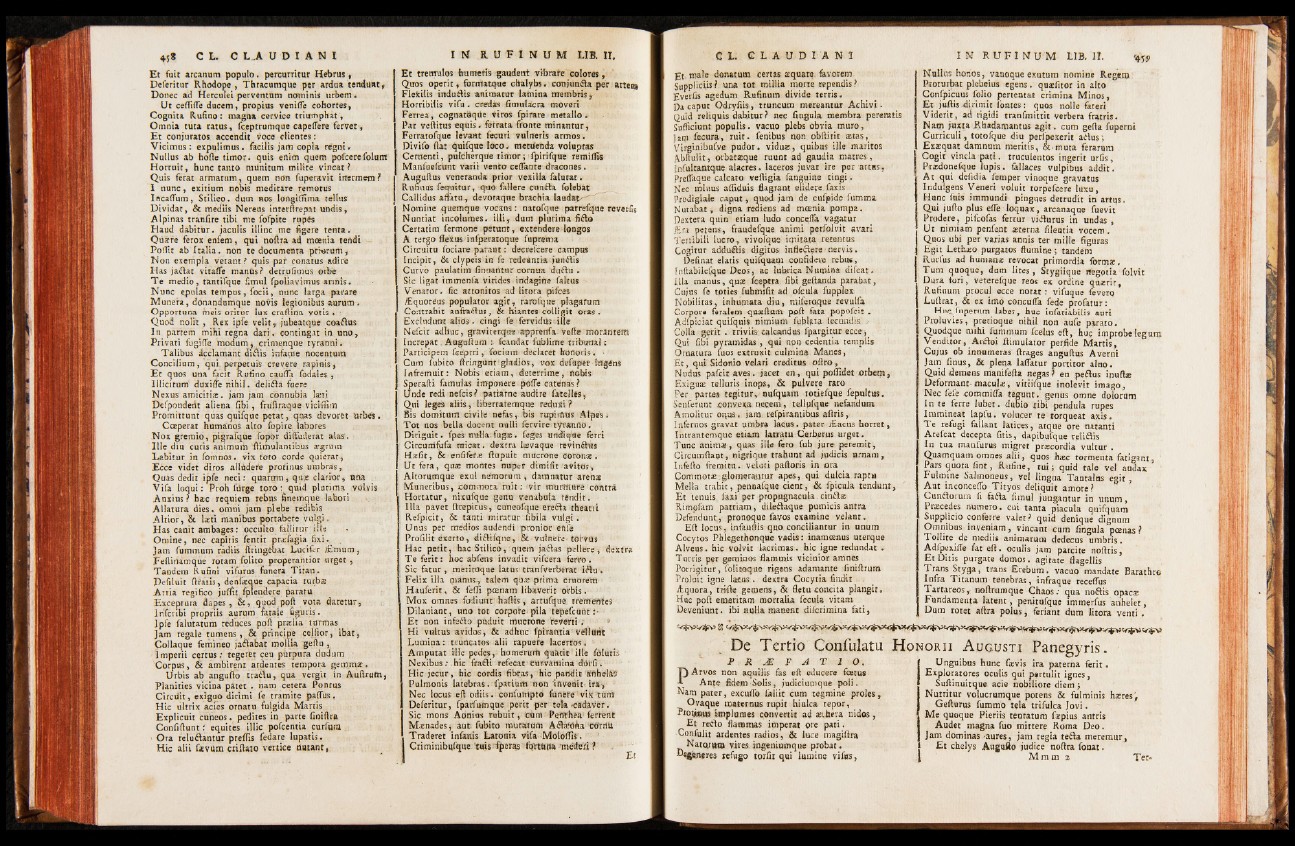 458 CL. CLAUDIANI
Et fuit arcanum populo. percurritur Hebrus,
Deſeritur Rhodope, Thracumque per ardua tenduat,
Donec ad Herculei perventum nominis urbem.
Ut ceſſiſſe ducem, propius veniſſe cohortes,
Cognita Rufino: magna cervice triumphat,
Omnia tuta ratus, ſceptrumque capeſſere fervet,
Et conjuratos accendit voce clientes:
Vicimus: expulimus. facilis jam copia regni.
Nullus ab hoſte timor. quis enim quem poſcere ſolum
Horruit, hunc tanto munitum milite vincat?
Quis ferat armatum, quem non ſuperavit inermem?
I nunc, exitium nobis meditare remotus
Incaſſum, Stilico. dum nos longiſſima tellus
Dividat, & mediis Nereus interſtrepat undis,
Alpinas tranſire tibi me ſoſpite rupes
Haud dabitur. jaculis illinc me figere tenta.
Quære ferox enſem, qui noſtra ad mœnia tendi
Poſſit ab Itala. non te documenta priorum,
Non exempla vetant? quis par conatus adire
Has jactat vitaſſe manus? detruſimus orbe
Te medio, tantiſque ſimul ſpoliavimus armis.
Nunc epulas tempus, ſocii, nunc larga parare
Munera, donandumque novis legionibus aurum.
Opportuna meis oritur lux craſtina votis.
Quod nolit, Rex ipſe velit, jubeatque coactus
In partem mihi regna dari. contingat in uno,
Privati fugiſſe modum, crimenque tyranni.
Talibus acclamant dictis infame nocentum
Concilium, qui perpetuis crevere rapinis,
Et quos una facit Rufino cauſſa ſodales,
Illicitum duxiſſe nihil. delicta fuere
Nexus amicitiæ. jam jam connubia læti
Deſponderit aliena ſibi, fruſtraque viciſſim
Promittunt quas quiſque petat, quas devoret urbes.
Cœperat humanos alto ſopire labores
Nox gremio, pigraſque ſopor diffuderat alas.
Ille diu curis animum ſtimulantibus ægrum
Labitur in ſomnos. vix toto corde quierat,
Ecce videt diros alludere protinus umbras,
Quas dedit ipſe neci: quarum, quæ clarior, una
Viſa loqui: Proh ſurge toro; quid plurima volvis
Anxius? hæc requiem rebus finemque labori
Allatura dies. omni jam plebe redibis
Altior, & læti manibus portabere vulgi.
Has canit ambages: occulto fallitur ille
Omine, nec capitis ſentit præſagia fixi.
Jam ſummum radiis ſtringebat Lucifer Æmum,
Feſtinamque rotam ſolito properantior urget,
Tandem Rufini viſurus funera Titan.
Deſiluit ſtratis, denſæque capacia turbæ
Atria regifico juſſit ſplendere paratu
Exceptura dapes, &, quod poſt vota daretur,
Inſcribi propriis aurum fatale figuris.
Ipſe ſalutatum reduces poſt prælia turmas
Jam regale tumens, & principe celſior, ibat,
Collaque femineo jactabat mollia geſtu,
Imperii certus: tegeret ceu purpura dudum
Corpus, & ambirent ardentes tempora gemmæ.
Urbis ab anguſto tractu, qua vergit in Auſtrum,
Planities vicina patet. nam cetera Pontus
Circuit, exiguo dirimi ſe tramite paſſus.
Hic ultrix acies ornatu fulgida Martis
Explicuit cuneos. pedites in parte ſiniſtra
Conſiſtunt: equites illic poſcentia curſum
Ora reluctantur preſſis ſedare lupatis.
Hic alii ſævum criſtato vertice nutant,
IN RUFINUM LIB. II.
Et tremulos humeris gaudent vibrare colores,
Quos operit, formatque chalybs. conjuncta per artem
Flexilis inductis animatur lamina membris,
Horribilis viſu. credas ſimulacra moveri
Ferrea, cognatoque viros ſpirare metallo.
Par veſtitus equis. ferrata fronte minantur,
Ferratoſque levant ſecuri vulneris armos.
Diviſo ſtat quiſque loco. metuenda voluptas
Cernenti, pulcherque timor; ſpiriſque remiſſis
Manſueſcunt varii vento ceſſante dracones.
Auguſtus veneranda prior vexilla ſalutat.
Rufinus ſequitur, quo fallere cuncta ſolebat
Callidus affatu, devotaque brachia laudat,
Nomine quemque vocans: natoſque patreſque reverſis
Nuntiat incolumes. illi, dum plurima ficto
Certatim ſermone petunt, extendere longos
A tergo flexus inſperatoque ſuprema
Circuitu ſociare parant: decreſcere campus
Incipit, & clypeis in ſe redeuntia junctis
Curvo paulatim ſinuantur cornua ductu.
Sic ligat immenſa virides indagine ſaltus
Venator. ſic attonitos ad litora piſces
Æquoreus populator agit, raroſque plagarum
Contrahit anfractus, & hiantes colligit oras.
Excludunt alios. cingi ſe fervidus ille
Neſcit adhuc, graviterque apprenſa veſte morantem
Increpat Auguſtum: ſcandat ſublime tribunal:
Participem ſceptri, ſocium declaret honoris.
Cum ſubito ſtringunt gladios, vox deſuper ingens
Infremuit: Nobis etiam, deterrime, nobis
Speraſti famulas imponere poſſe catenas?
Unde redi neſcis? patiarne audire ſatelles,
Qui leges aliis, libertatemque reduxi?
Bis domitum civile nefas, bis rupimus Alpes.
Tot nos bella docent nulli ſervire tyranno.
Diriguit. ſpes nulla fugæ. ſeges undique ferri
Circumfuſa micat. dextra lævaque revinctus
Hæſit, & enſiferæ ſtupuit mucrone coronæ.
Ut fera, quæ montes nuper dimiſit avitos,
Altorumque exul nemorum, damnatur arenæ
Muneribus, commota ruit: vir murmure contra
Hortatur, nixuſque genu venabula tendit.
Illa pavet ſtrepitus, cuneoſque erecta theatri
Reſpicit, & tanti miratur ſibila vulgi.
Unus per medios audendi pronior enſe
Proſilit exerto, dictiſque, & vulnere torvus
Hac petit, hac Stilico, quem jactas pellere, dextra
Te ferit: hoc abſens invadit viſcera ferro.
Sic fatur, meritoque latus tranſverberat ictu.
Felix illa manus, talem quæ prima cruorem
Hauſerit, & feſſi pœnam libaverit orbis.
Mox omnes fodiunt haſtis, artuſque trementes
Dilaniant, uno tot corpore pila tepeſcunt:
Et non infecto puduit mucrone reverti.
Hi vultus avidos, & adhuc ſpirantia vellunt
Lumina: truncatos alii rapuere lacertos.
Amputat ille pedes, humerum quatit ille ſolutis
Nexibus: hic fracti reſecat curvamina dorſi.
Hic jecur, hic cordis fibras, hic pandit anhelas
Pulmonis latebras. ſpatium non invenit ira,
Nec locus eſt odiis. conſumpto funere vix tum
Deſeritur, ſparſumque perit per tela cadaver.
Sic mons Aonius rubuit, cum Penthea ferrent
Mænades, aut ſubito mutatum Actæona cornu
Traderet inſanis Latonia viſa Moloſſis.
Criminibuſque tuis ſperas fortuna mederi?
Et
CL. CLAUDIANI
Et male donatum certas æquare favorem
Suppliciis? una tot millia morte rependis?
Everſis agedum Rufinum divide terris.
Da caput Odryſiis, truncum mereantur Achivi.
Quid reliquis dabitur? nec ſingula membra peremtis
Sufficiunt populis. vacuo plebs obvia muro,
Jam ſecura, ruit. ſenibus non obſtitit ætas,
Virginibuſve pudor. viduæ, quibus ille maritos
Abſtulit, orbatæque ruunt ad gaudia matres,
Inſultantque alacres. laceros juvat ire per artus,
Preſſaque calcato veſtigia ſanguine tingi.
Nec minus aſſiduis flagrant elidere ſaxis
Prodigiale caput, quod jam de cuſpide ſumma
Nutabat, digna rediens ad mœnia pompa.
Dextera quin etiam ludo conceſſa vagatur
Æra petens, fraudeſque animi perſolvit avari
Terribili lucro, vivoſque imitata retentus
Cogitur adductis digitos inflectere nervis.
Deſinat elatis quiſquam confidere rebus,
Inſtabileſque Deos, ac lubrica Numina diſcat.
Illa manus, quæ ſceptra ſibi geſtanda parabat,
Cujus ſe toties ſubmiſit ad oſcula ſupplex
Nobilitas, inhumata diu, miſeroque revulſa
Corpore feralem quæſtum poſt fata popoſcit.
Adſpiciat quiſquis nimium ſublata ſecundis
Colla gerit. triviis calcandus ſpargitur ecce,
Qui ſibi pyramidas, qui non cedentia templis
Ornatura ſuos extruxit culmina Manes,
Et, qui Sidonio velari creditus oſtro,
Nudus paſcit aves. jacet en, qui poſſidet orbem,
Exiguæ telluris inops, & pulvere raro
Per partes tegitur, nuſquam totieſque ſepultus.
Senſerunt convexa necem, telluſque nefandum
Amolitur onus. jam reſpirantibus aſtris,
Infernos gravat umbra lacus. pater Æacus horret,
Intrantemque etiam latratu Cerberus urget.
Tunc animæ, quas ille fero ſub jure peremit,
Circumſtant, nigrique trahunt ad judicis urnam,
Infeſto fremitu. veluti paſtoris in ora
Commotæ glomerantur apes, qui dulcia raptu
Mella trahit, pennaſque cient, & ſpicula tendunt,
Et tenuis ſaxi per propugnacula cinctæ
Rimoſam patriam, dilectaque pumicis antra
Defendunt, pronoque favos examine velant.
Eſt locus, infauſtis quo conciliantur in unum
Cocytos Phlegethonque vadis: inamœnus uterque
Alveus. hic volvit lacrimas. hic igne redundat.
Turris per geminos flammis vicinior amnes
Porrigitur, ſolitoque rigens adamante ſiniſtrum
Proluit igne latus. dextra Cocytia findit
Æquora, triſte gemens, & fletu concita plangit.
Huc poſt emeritam mortalia ſecula vitam
Deveniunt. ibi nulla manent diſcrimina fati,
IN RUFINUM LIB. II. 459
Nullus honos, vanoque exutum nomine Regem
Proturbat plebeius egens. quæſitor in alto
Conſpicuus ſolio pertentat crimina Minos,
Et juſtis dirimit ſontes: quos nolle fateri
Viderit, ad rigidi tranſmittit verbera fratris.
Nam juxta Rhadamantus agit. cum geſta ſuperni
Curriculi, totoſque diu perſpexerit actus;
Exæquat damnum meritis, & muta ferarum
Cogit vincla pati. truculentos ingerit urſis,
Prædoneſque lupis. fallaces vulpibus addit.
At qui deſidia ſemper vinoque gravatus
Indulgens Veneri voluit torpeſcere luxu,
Hunc ſuis immundi pingues detrudit in artus.
Qui juſto plus eſſe loquax, arcanaque ſuevit
Prodere, piſcoſas fertur victurus in undas,
Ut nimiam penſent æterna ſilentia vocem.
Quos ubi per varias annis ter mille figuras
Egit Lethæo purgatos flumine; tandem
Rurſus ad humanæ revocat primordia formæ.
Tum quoque, dum lites, Stygiique negotia ſolvit
Dura fori, vetereſque reos ex ordine quærit,
Rufinum procul ecce notat: viſuque ſevero
Luſtrat, & ex imo concuſſa ſede profatur:
Huc ſuperum labes, huc inſatiabilis auri
Proluvies, pretioque nihil non auſe parato.
Quodque mihi ſummum ſcelus eſt, huc improbe legum
Venditor, Arctoi ſtimulator perfide Martis,
Cujus ob innumeras ſtrages anguſtus Averni
Jam ſinus, & plena laſſatur portitor alno.
Quid demens manifeſta negas? en pectus inuſtæ
Deformant maculæ, vitiiſque inolevit imago,
Nec ſeſe commiſſa tegunt. genus omne dolorum
In te ferre lubet. dubio tibi pendula rupes
Immineat lapſu. volucer te torqueat axis.
Te refugi fallant latices, atque ore natanti
Areſcat decepta ſitis, dapibuſque relictis
In tua manſurus migret præcordia vultur.
Quamquam omnes alii, quos hæc tormenta fatigant,
Pars quota ſint, Rufine, tui; quid tale vel audax
Fulmine Salmoneus, vel lingua Tantalus egit,
Aut inconceſſo Tityos deliquit amore?
Cunctorum ſi facta ſimul jungantur in unum,
Præcedes numero. cui tanta piacula quiſquam
Supplicio conferre valet? quid denique dignum
Omnibus inveniam, vincant cum ſingula pœnas?
Tollite de mediis animarum dedecus umbris.
Adſpexiſſe ſat eſt. oculis jam parcite noſtris,
Et Ditis purgate domos. agitate flagellis
Trans Styga, trans Erebum. vacuo mandate Barathro
Infra Titanum tenebras, infraque receſſus
Tartareos, noſtrumque Chaos: qua noctis opacæ
Fundamenta latent, penituſque immerſus anhelet,
Dum rotet aſtra polus, feriant dum litora venti.
De Tertio Conſulatu HONORII AUGUSTI Panegyris.
PRÆFATIO.
PArvos non aquilis fas eſt educere fœtus
Ante fidem Solis, judiciumque poli.
Nam pater, excuſſo ſaliit cum tegmine proles,
Ovaque maternus rupit hiulca tepor,
Protinus implumes convertit ad æthera nidos,
Et recto flammas imperat ore pati.
Conſulit ardentes radios, & luce magiſtra
Natorum vires ingeniumque probat.
Degeneres refugo torſit qui lumine viſus,
Unguibus hunc ſævis ira paterna ferit.
Exploratores oculis qui pertulit ignes,
Suſtinuitque acie nobiliore diem;
Nutritur volucrumque potens & fulminis hæres,
Geſturus ſummo tela triſulca Jovi.
Me quoque Pieriis tentatum ſæpius antris
Audet magna ſuo mittere Roma Deo.
Jam dominas aures, jam regia tecta meremur,
Et chelys Auguſto judice noſtra ſonat.
Mmm 2 Ter-